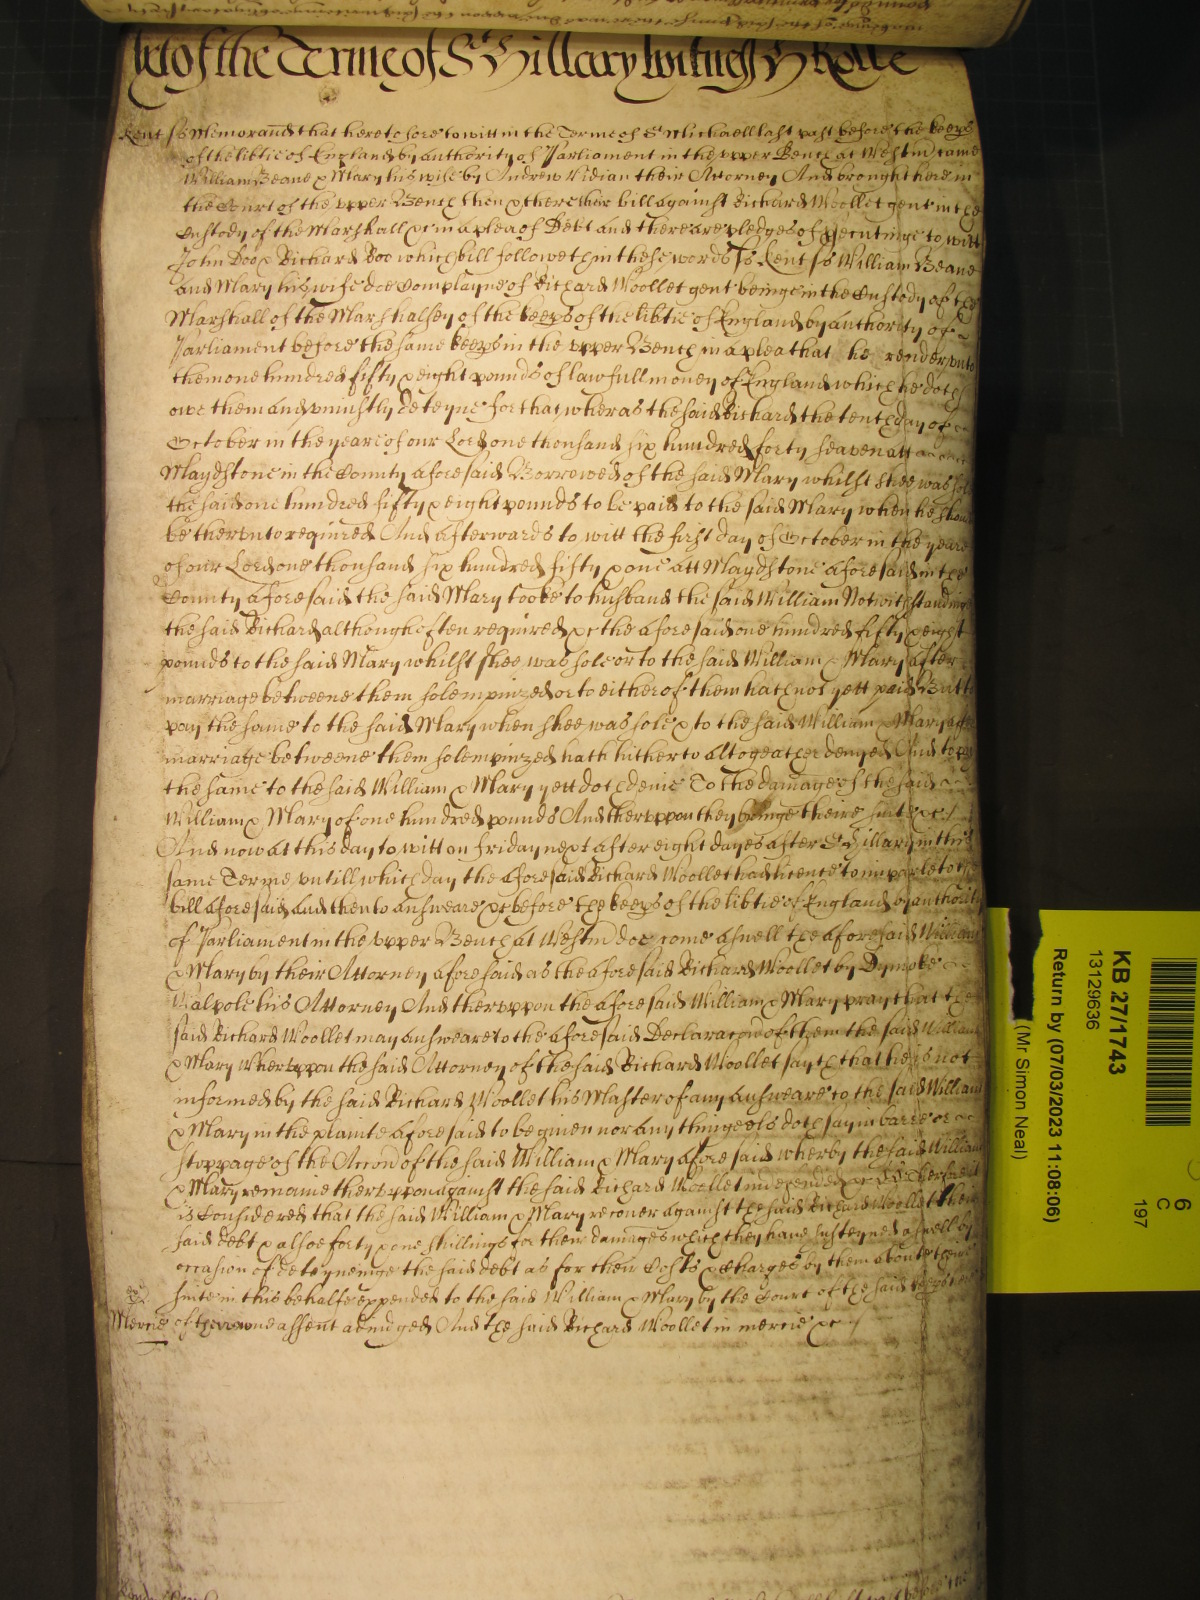 yet of the Terme of St Hillary Witness H Rolle
Kent ss Memorand that heretofore to witt in the Terme of St Michaell last past before the keeps
of the libtie of England by authority of Parliament in the upper Bench at Westm came
William Beane & Mary his wife by Andrew Vidian their Attorney And brought here in
the Court of the upper Bench then & there their bill against Richard Woollet gent in the
Custody of the Marshall &c in a plea of Debt and there are pledges of psecutinge to witt
John Doo & Richard Roo which bill followeth in these words ss Kent ss William Beane
and Mary his wife doe Complayne of Richard Woollet gent beinge in the Custody of the
Marshall of the Marshalsey of the keeps of the libtie of England by authority of
Parliament before the same keeps in the upper Bench in a plea that he render unto
them one hundred fifty & eight pounds of lawfull money of England which he doth
owe them and uniustly deteyne for that wheras the said Richard the tenth day of
October in the yeare of our Lord one thousand six hundred forty seaven att
Maydstone in the County aforesaid Borrowed of the said Mary whilst shee was sole
the said one hundred fifty & eight pounds to be paid to the said Mary when he should
be therunto required And afterwards to witt the first day of October in the yeare
of our Lord one thousand six hundred fifty & one att Maydstone aforesaid in the
County aforesaid the said Mary tooke to husband the said William Notwithstandinge
the said Richard although often required &c the aforesaid one hundred fifty & eight
pounds to the said Mary whilst shee was sole or to the said William & Mary after
marriage betweene them solempnized or to either of them hath not yett paid Butt
pay the same to the said Mary when shee was sole & to the said William & Mary after
marriage betweene them solempnized hath hitherto altogeather denyed And to pay
the same to the said William & Mary yett doth denie To the damage of the said
William & Mary of one hundred pounds And theruppon they bringe theire suite &c
And now at this day to witt on Friday next after eight dayes after St Hillary in this
same Terme untill which day the aforesaid Richard Woollet had licence to imparle to the
bill aforesaid and then to answeare &c before the keeps of the libtie of England by authority
of Parliament in the upper Bench at Westm doe come aswell the aforesaid William
& Mary by their Attorney aforesaid as the aforesaid Richard Woollet by Dymoke
Walpole his Attorney And theruppon the aforesaid William & Mary pray that the
said Richard Woollet may answeare to the aforesaid Declaracon of them the said William
& Mary Wheruppon the said Attorney of the said Richard Woollet sayth that he is not
informed by the said Richard Woollet his Master of any answeare to the said William
& Mary in the plainte aforesaid to be given nor any thinge els doth say in barre or
stoppage of the Accon of the said William & Mary aforesaid wherby the said William
& Mary remaine theruppon against the said Richard Woollet undefended &c Therfore it
is Considered that the said William & Mary recover against the said Richard Woollet their
said debt & alsoe forty & one shillings for their damages which they have susteyned aswell by
occasion of deteyneinge the said debt as for their Costs & Charges by them about their
suite in this behalfe expended to the said William & Mary by the Court of the said keeps here
Mercie of their owne assent adiudged And the said Richard Woollet in mercie &c
KB 27/1743
13129636
Return by (07/03/2023 11:08:06)
(Mr Simon Neal)
6
C
197